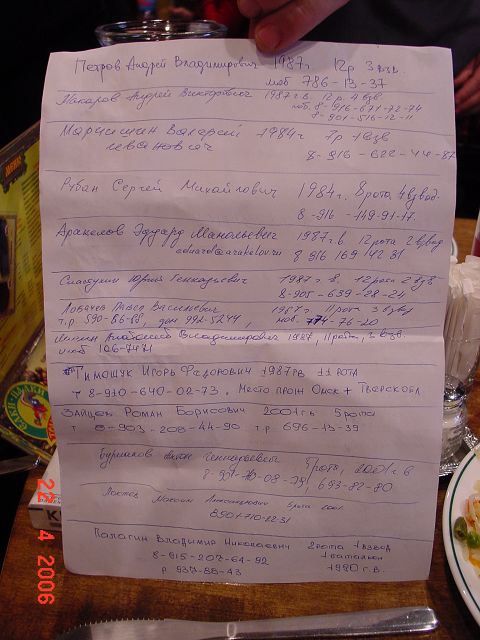 Петров Андрей Владимирович 1987г 12р 3 взв.
моб 786-13-37
Макаров Андрей Викторович 1987г.в. 12р. 4 взв
моб. 8-916-671-72-94
8-901-516-12-11
Валерий 1984г 7р 1 взв
8-916-622-44-87
Рубан Сергей Михайлович 1984г. 8рота 4взвод.
8-916-149-91-17.
Аракелов Эдуард Манольевич 1987г.в. 12рота 2взвод
eduard@arakelov.ru 8 916 169 42 31
Сластухин Юрий Геннадьевич 1987г.в. 12рота 2 взв
8-905-639-28-24
Лобачев Павел Васильевич 1987г 11рота 3 взвод
т.р. 590-86-68, дом 992-5244, моб. 774-76-20
Владимирович 1987, 11рота, 3 взв.
моб 106-7471
Тимощук Игорь Федорович 1987гв 11 рота
т 8-910-640-02-73. Место прож Омск + Тверская
Зайцев Роман Борисович 2001г.в 5рота
т 8-903-208-44-90 т.р. 696-13-39
Геннадьевич 5рота, 2001 г.в
693-82-80
Максим Александрович 5рота 2001.
8901-710-22-31
Палагин Владимир Николаевич 2рота 1взвод
8-915-207-64-92 1 батальон
р 937-88-43 1990 г.в.
22 4 2006